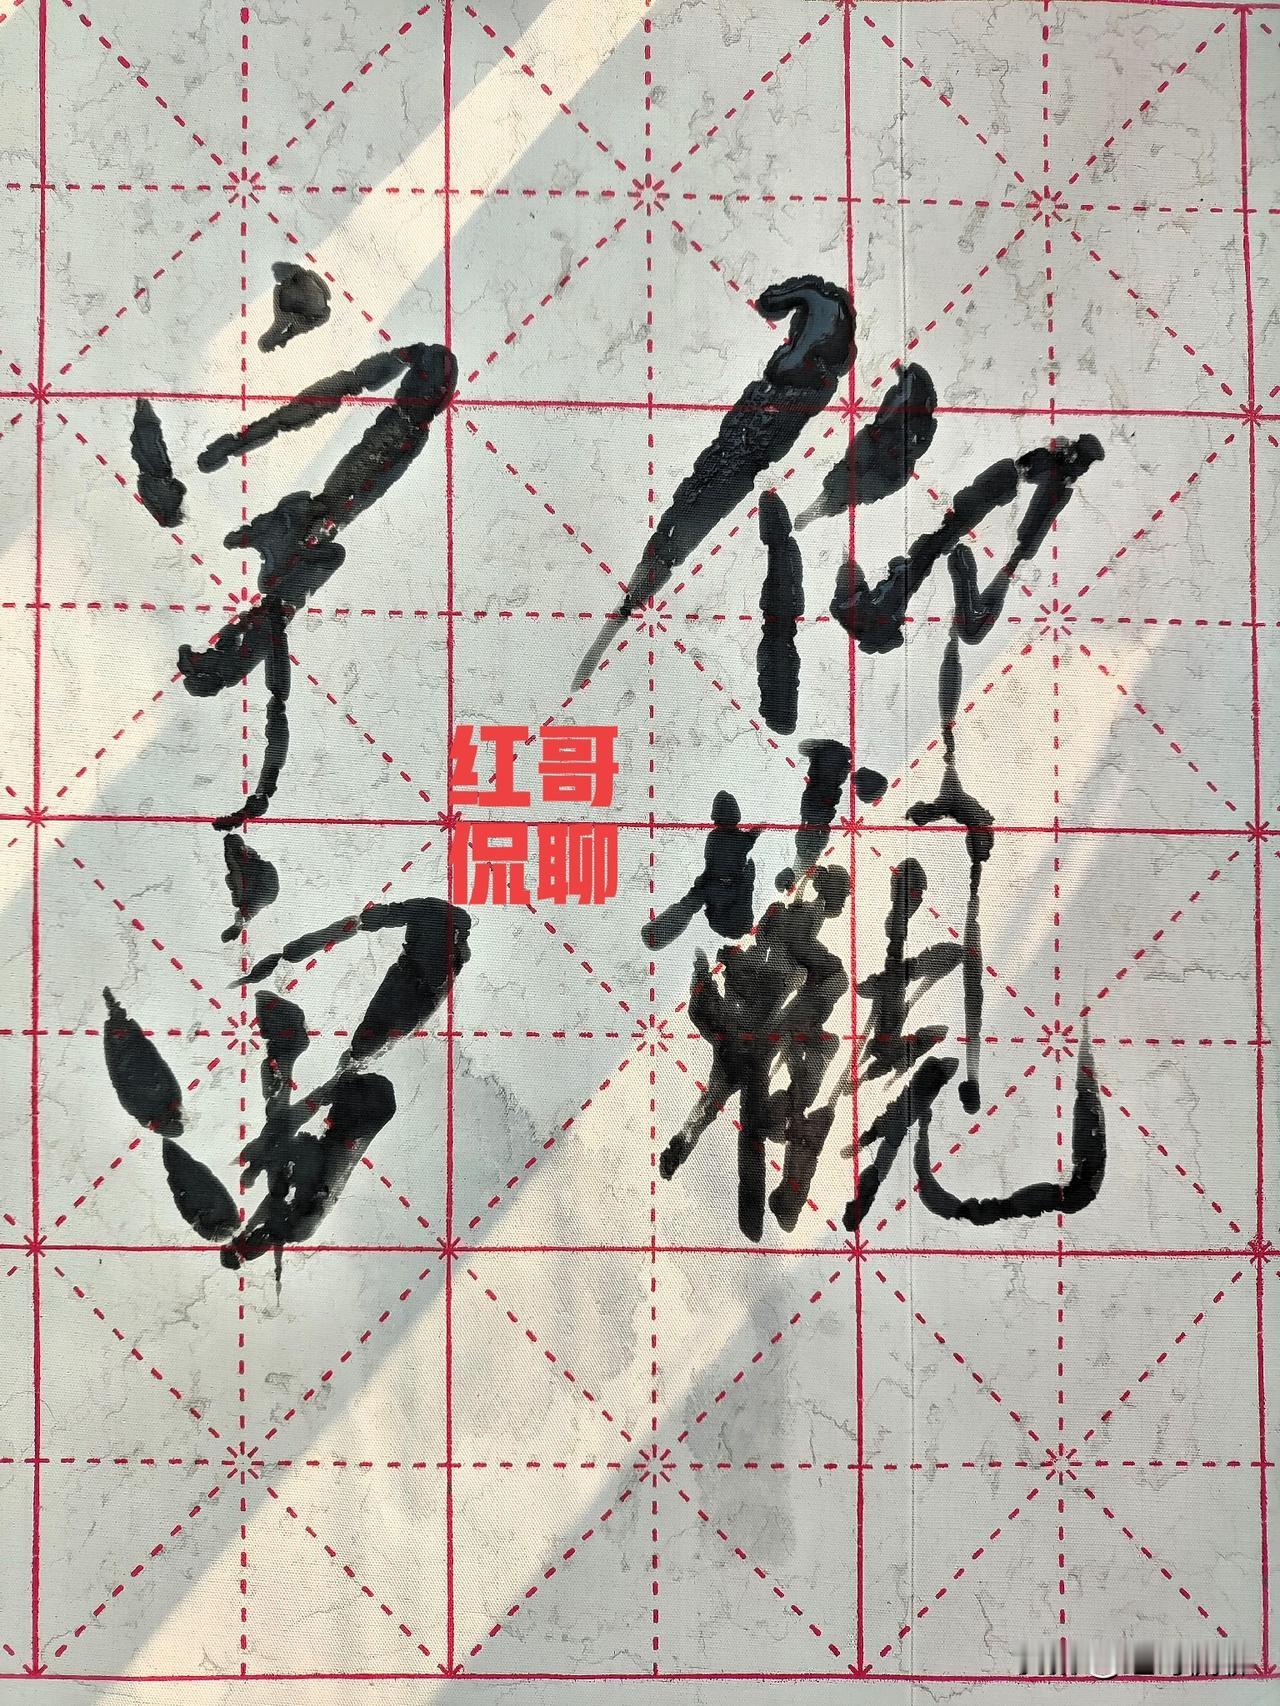 仰觀
宇宙
红哥
侃聊